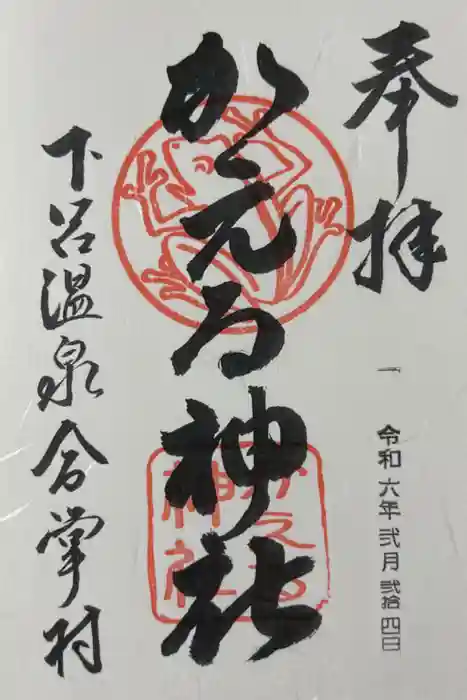 奉拝
一
令和六年弐月弐拾四日
かえる神社
かえる
神社
下呂温泉合掌村